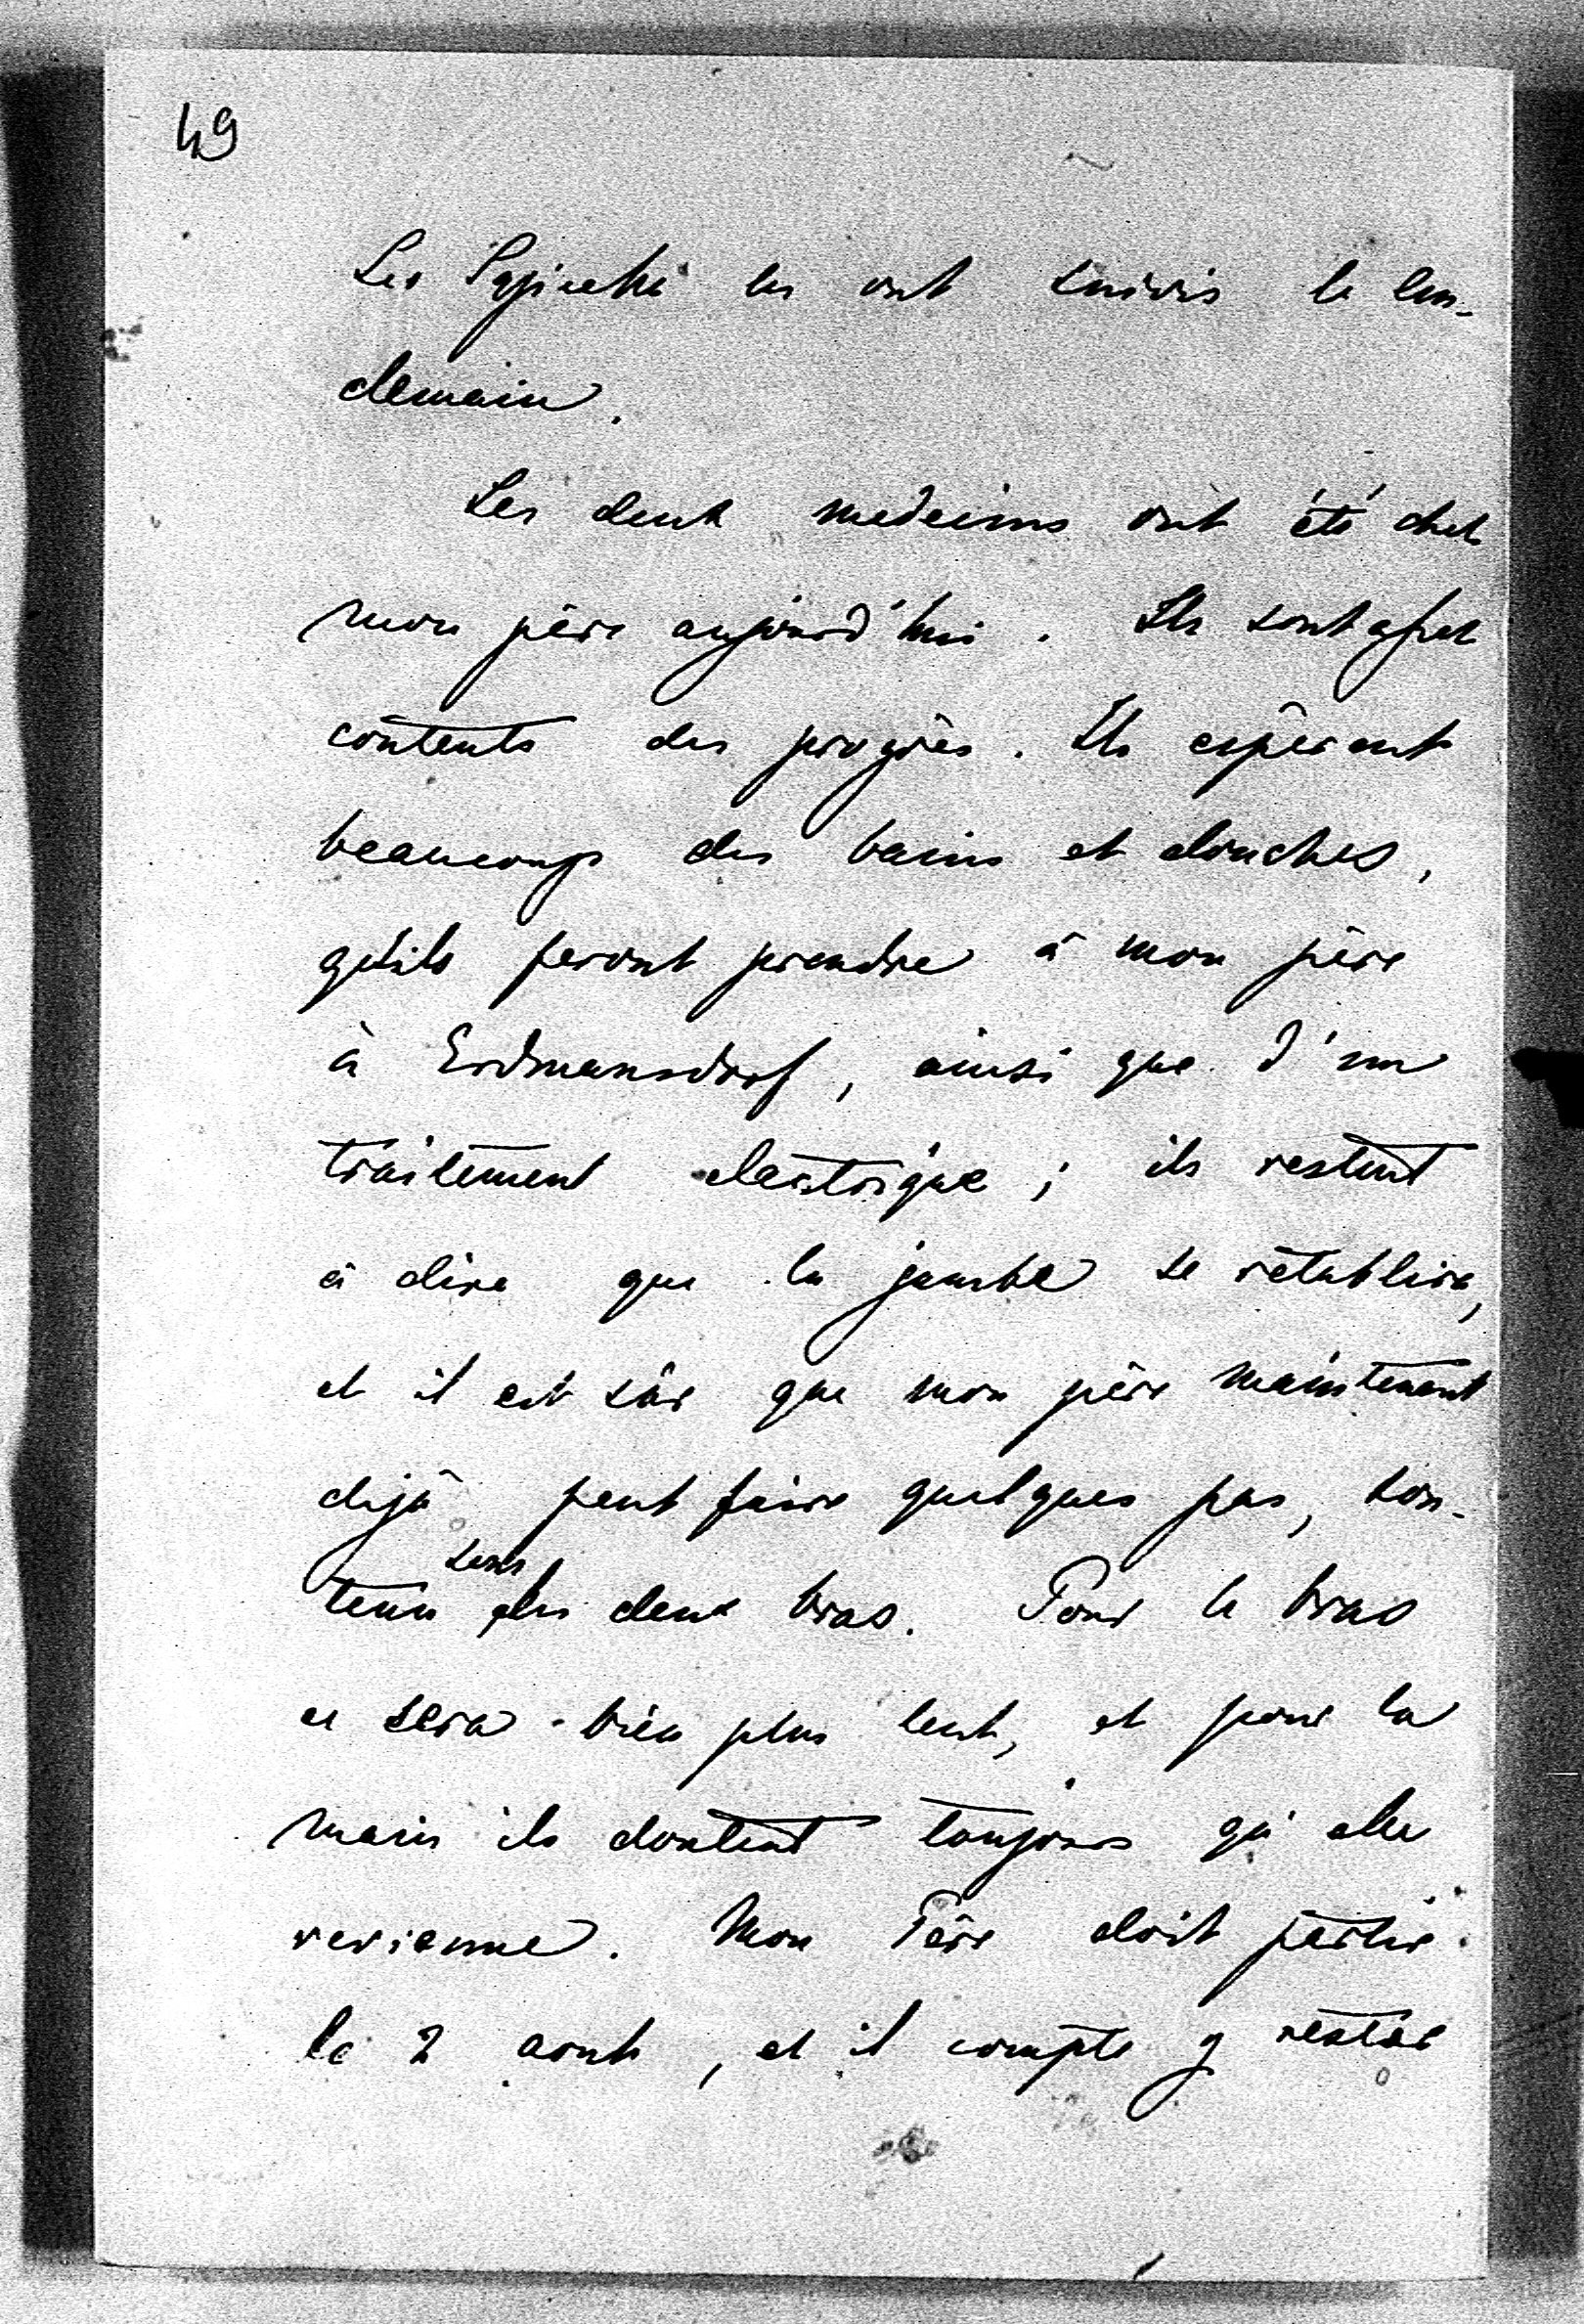 49
Les les ont suivis le len-
demain.
Les deux medecins ont été chez
mon père aujourd'hui. Ils sont assez
contents des progrès. Ils espèrent
beaucoup des bains et douches,
qu'ils feront prendre à mon père
à Erdmansdorf, ainsi que d'un
traitement electrique; ils restent
à dire que la jambe se rétablira,
et il est sûr que mon père maintenant
dejà peut faire quelques pas, sou-
sous
tenu des deux bras. Pour le bras
ce sera bien plus lent, et pour la
main ils doutent toujours qu'elle
revienne. Mon Père doit partir
le 2 aout, et il compte y rester